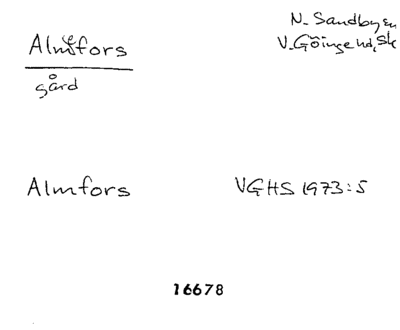 Almfors
gård
N. Sandby sn
V. Göinge hd, Sk
Almfors
VGHS 1973:5
16678